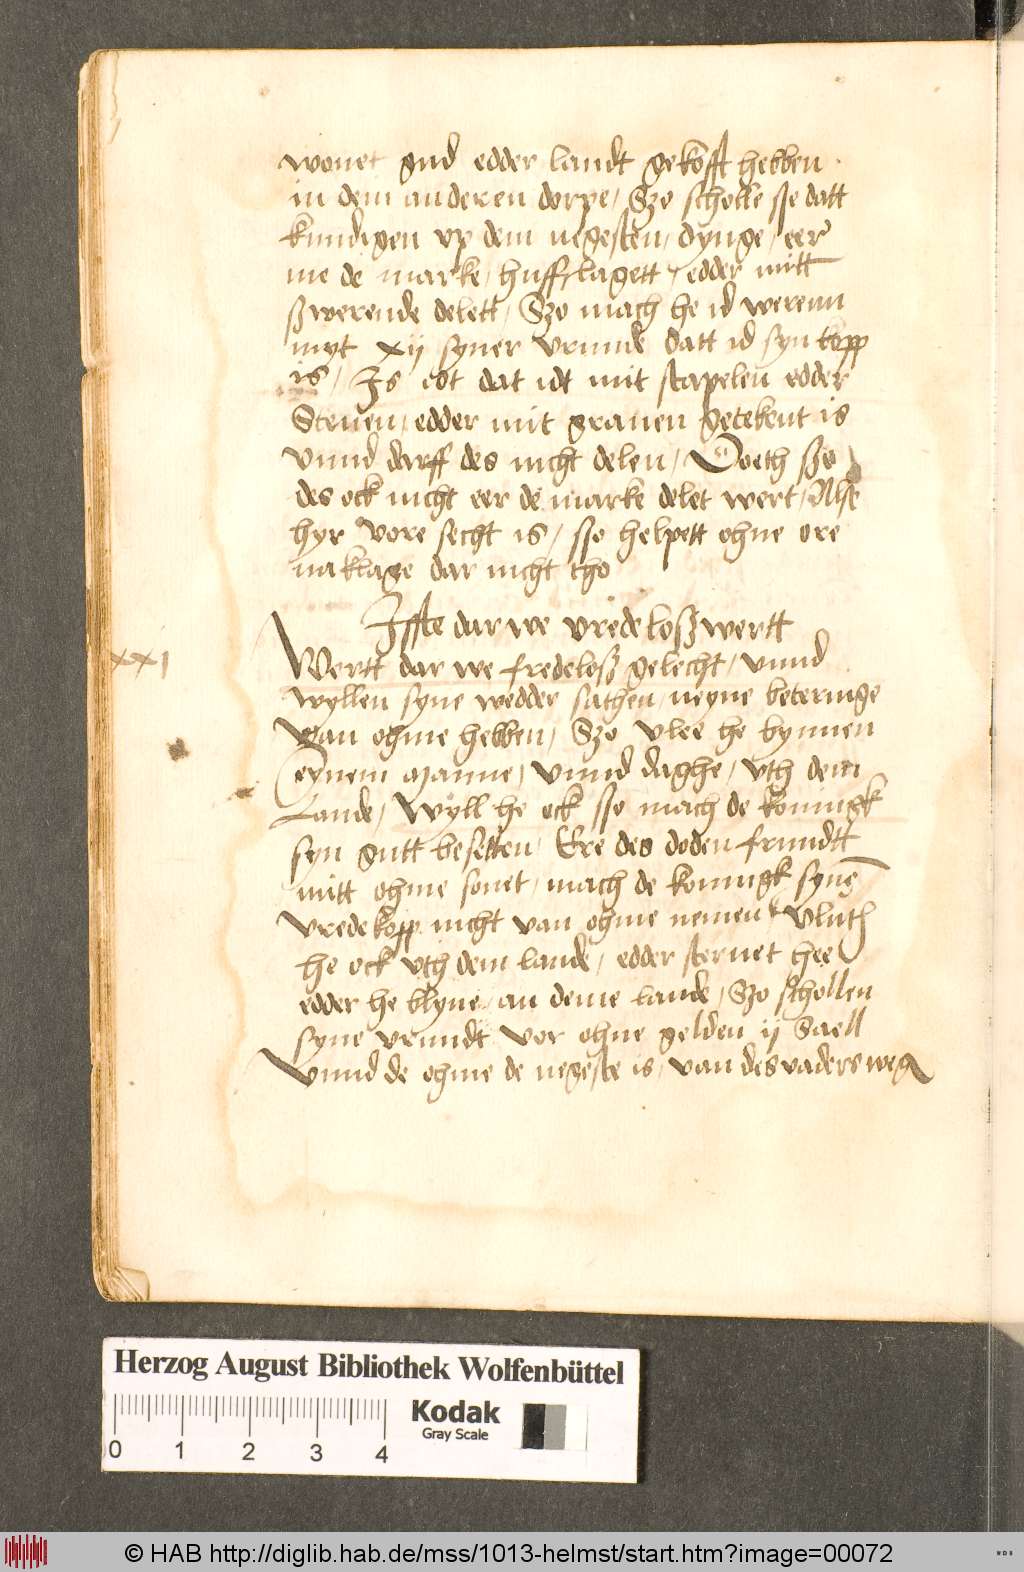 wonet gud edder landt gekofft hebben
in dem anderen dorpe / Szo scholle sse datt
kundigen vp dem negesten dynge / eer
me de marke / huffslagett / edder mitt
ßwerende delett / Szo mach he id werenn
myt xij syner vrunde datt id syn kopp
is / Is ...ot dat idt mit stapelen edder
Stenen / edder mit grauen getekent is
vnnd darff des nicht delen / Doeth sse
des ock nicht eer de marke delet wert / Alse
hyr vore secht is / sso helpett ohne ore
naklage dar nicht tho
Iffte dar we vredeloß wertt
xxj
Wertt dar we fredeloß gelecht / vnnd
wyllen syne wedder sathen / neyne beteringe
van ohme hebben / Szo vlee he bynnen
eynem manne / vnnd daghe / vth dem
Lande / Wyll he ock sso mach de koningk
syn gutt besetten / Ere des doden frundtt
mitt ohme sonet / mach de koningk syne
vredekopp nicht van ohme nemen / vluth
he ock vth dem lande / edder steruet hee
edder he blyue an deme lande / Szo schollen
syne vrundt vor ohne gelden ij Saell
Vnnd de ohme de negeste is / van des vaders weg
Herzog August Bibliothek Wolfenbüttel
0 1 2 3 4
Kodak
Gray Scale
© HAB http://diglib.hab.de/mss/1013-helmst/start.htm?image=00072